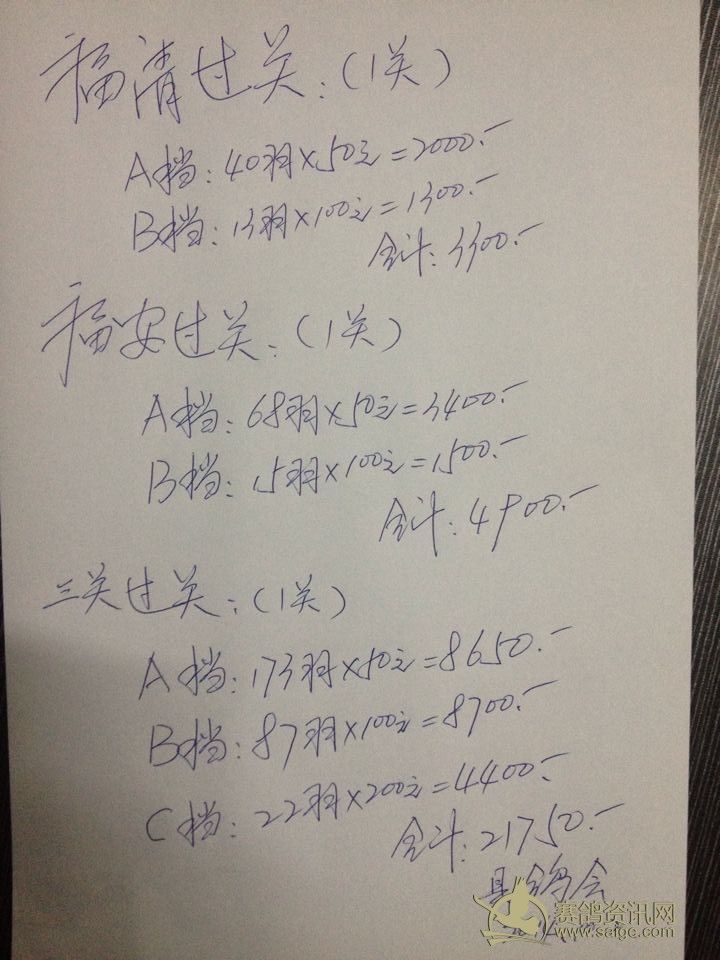 福清过关：（1关）
A档：40羽×50元=2000.-
B档：13羽×100元=1300.-
合计：3300.-
福安过关：（1关）
A档：68羽×50元=3400.-
B档：15羽×100元=1500.-
合计：4900.-
三关过关：（1关）
A档：173羽×50元=8650.-
B档：87羽×100元=8700.-
C档：22羽×200元=4400.-
合计：21750.-
县鸽会
赛鸽资讯网
www.saige.com